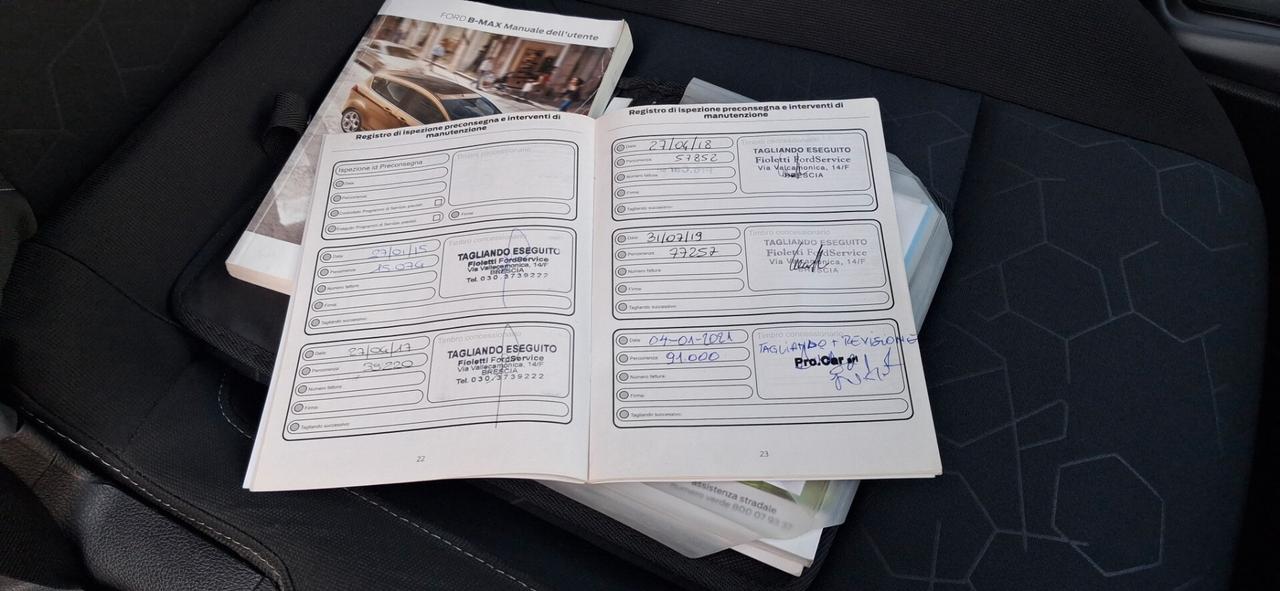 FORD B-MAX Manuale dell'utente
Registro di ispezione preconsegna e interventi di
manutenzione
Ispezione id Preconsegna
Timbro concessionario
Data
Percorrenza:
Controllato Programmi di Servizio previsti
Eseguito Programmi di Servizio previsti
Firma:
Data 27/01/15
Percorrenza 15.074
Numero fattura:
Firma:
Tagliando successivo:
Timbro concessionario
TAGLIANDO ESEGUITO
Fioletti FordService
Via Vallecamonica, 14/F
BRESCIA
Tel. 030.3739222
Data: 27/04/17
Percorrenza: 39220
Numero fattura:
Firma:
Tagliando successivo:
Timbro concessionario
TAGLIANDO ESEGUITO
Fioletti FordService
Via Vallecamonica, 14/F
BRESCIA
Tel. 030/3739222
22
Registro di ispezione preconsegna e interventi di
manutenzione
Data: 27/04/18
Percorrenza: 57852
Numero fattura:
Firma:
Tagliando successivo:
Timbro concessionario
TAGLIANDO ESEGUITO
Fioletti FordService
Via Valcamonica, 14/F
BRESCIA
Data: 31/07/19
Percorrenza: 77257
Numero fattura:
Firma:
Tagliando successivo:
Timbro concessionario
TAGLIANDO ESEGUITO
Fioletti FordService
Via Valcamonica, 14/F
BRESCIA
Data: 04-01-2021
Percorrenza: 91.000
Numero fattura:
Firma:
Tagliando successivo:
Timbro concessionario
TAGLIANDO + REVISIONE
Pro.Car srl
23
assistenza stradale
Numero verde 800 07 93 37